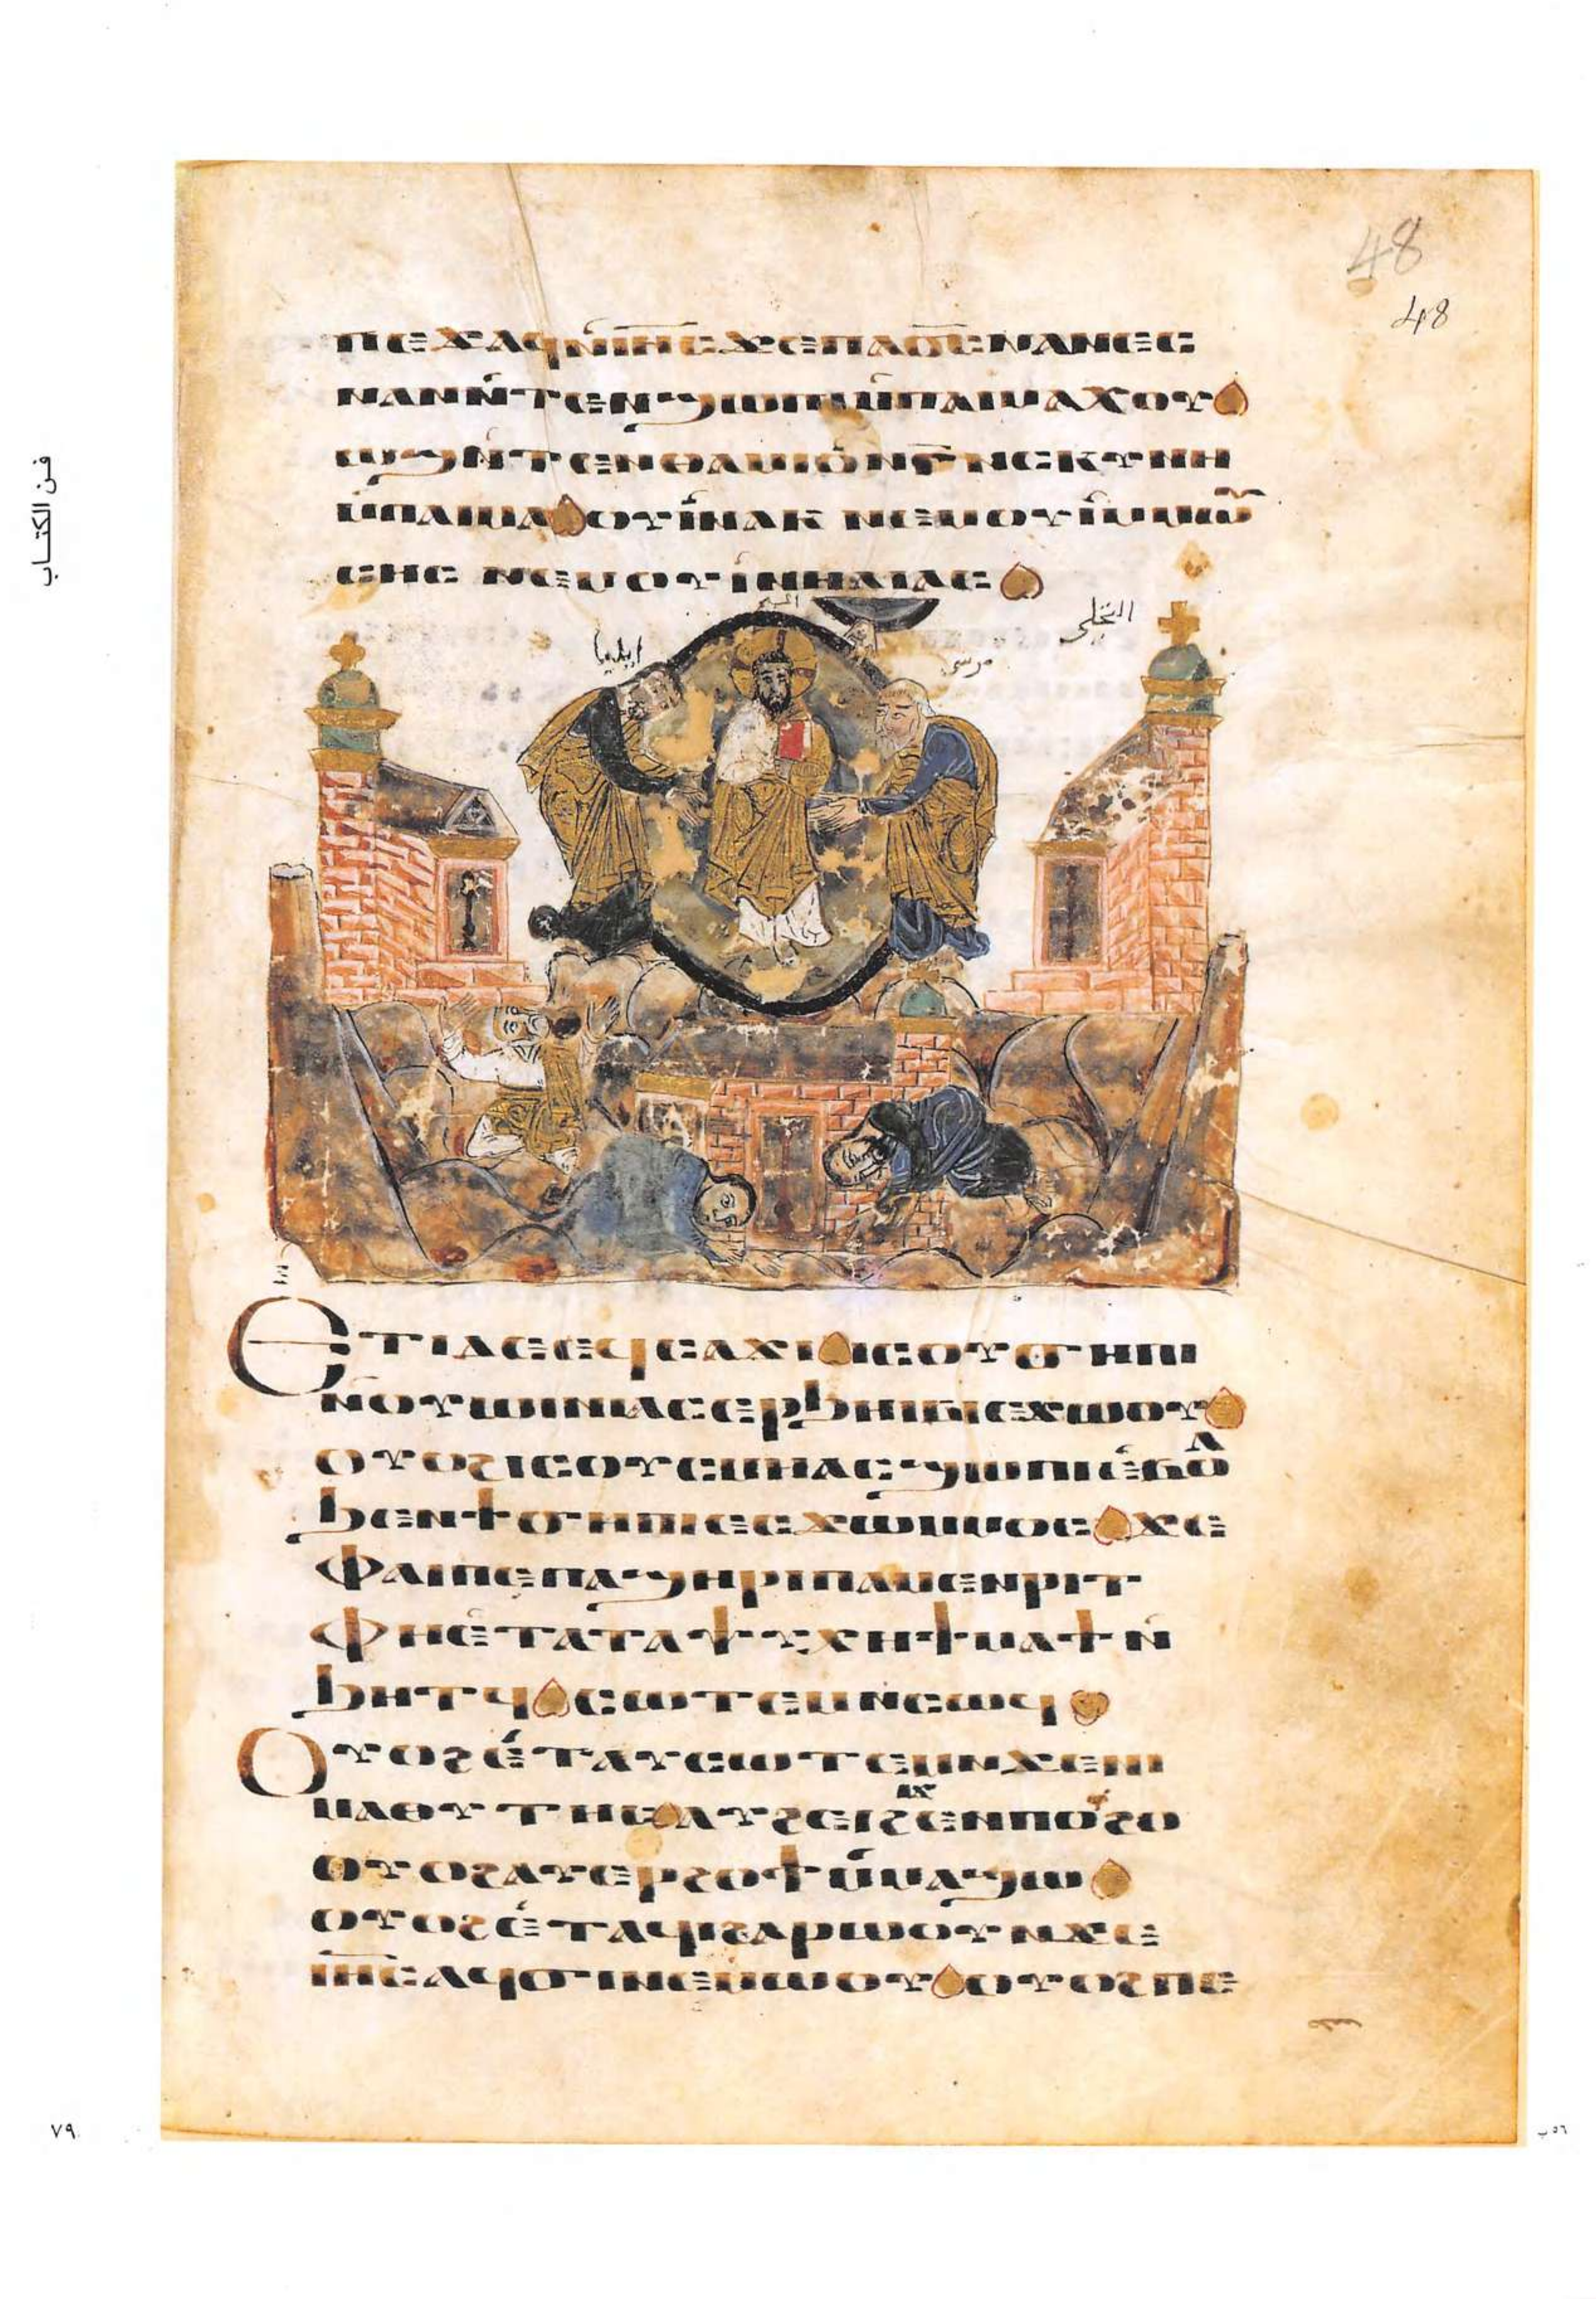 48
48
ⲡⲉϫⲁϥⲛ̀ⲓⲏ̅ⲥ̅ϫⲉⲡⲁϭ̅ⲥ̅ⲛⲁⲛⲉⲥ
ⲛⲁⲛⲛ̀ⲧⲉⲛϣⲱⲡⲓⲙ̀ⲡⲁⲓⲙⲁⲭⲟⲩ
ⲱϣⲛ̀ⲧⲉⲛⲑⲁⲙⲓⲟ̀ⲛⲅ̅ⲛⲥⲕⲩⲛⲏ
ⲙ̀ⲡⲁⲓⲙⲁⲟⲩⲓ̀ⲛⲁⲕ ⲛⲉⲙⲟⲩⲓ̀ⲙⲙⲱⲩ̈
ⲥⲏⲥ ⲛⲉⲙⲟⲩⲓ̀ⲛⲏⲗⲓⲁⲥ
التجلي
ايليا
موسى
ⲉⲧⲓⲇⲉⲉϥⲥⲁϫⲓⲓⲥⲟⲩϭⲏⲡⲓ
ⲛ̀ⲟⲩⲱⲓⲛⲓⲁⲥⲉⲣϧⲏⲓⲃⲓⲉϫⲱⲟⲩ
ⲟⲩⲟϩⲓⲥⲟⲩⲥⲙⲏⲁⲥϣⲱⲡⲓⲉ̀ⲃⲟⲗ
ϧⲉⲛϯϭⲏⲡⲓⲉⲥϫⲱⲙⲙⲟⲥϫⲉ
ⲫⲁⲓⲡⲉⲡⲁϣⲏⲣⲓⲡⲁⲙⲉⲛⲣⲓⲧ
ⲫⲏⲉ̀ⲧⲁⲧⲁⲯⲩⲭⲏϯⲙⲁϯⲛ̀
ϧⲏⲧϥⲥⲱⲧⲉⲙⲛⲥⲱϥ
ⲟⲩⲟϩⲉ̀ⲧⲁⲩⲥⲱⲧⲉⲙⲛϫⲉⲛⲓ
ⲙⲁⲑⲏⲧⲏⲥⲁⲩϩⲉⲓϩⲓϫⲉⲛⲡⲟⲩϩⲟ
ⲟⲩⲟϩⲁⲩⲉⲣϩⲟϯⲙ̀ⲙⲁϣⲱ
ⲟⲩⲟϩⲉ̀ⲧⲁϥⲓϩⲁⲣⲱⲟⲩⲛϫⲉ
ⲓⲏ̅ⲥ̅ⲁϥϭⲓⲛⲉⲙⲱⲟⲩⲟⲩⲟϩⲡⲉ
فن الكتاب
٧٩
٥٦ب